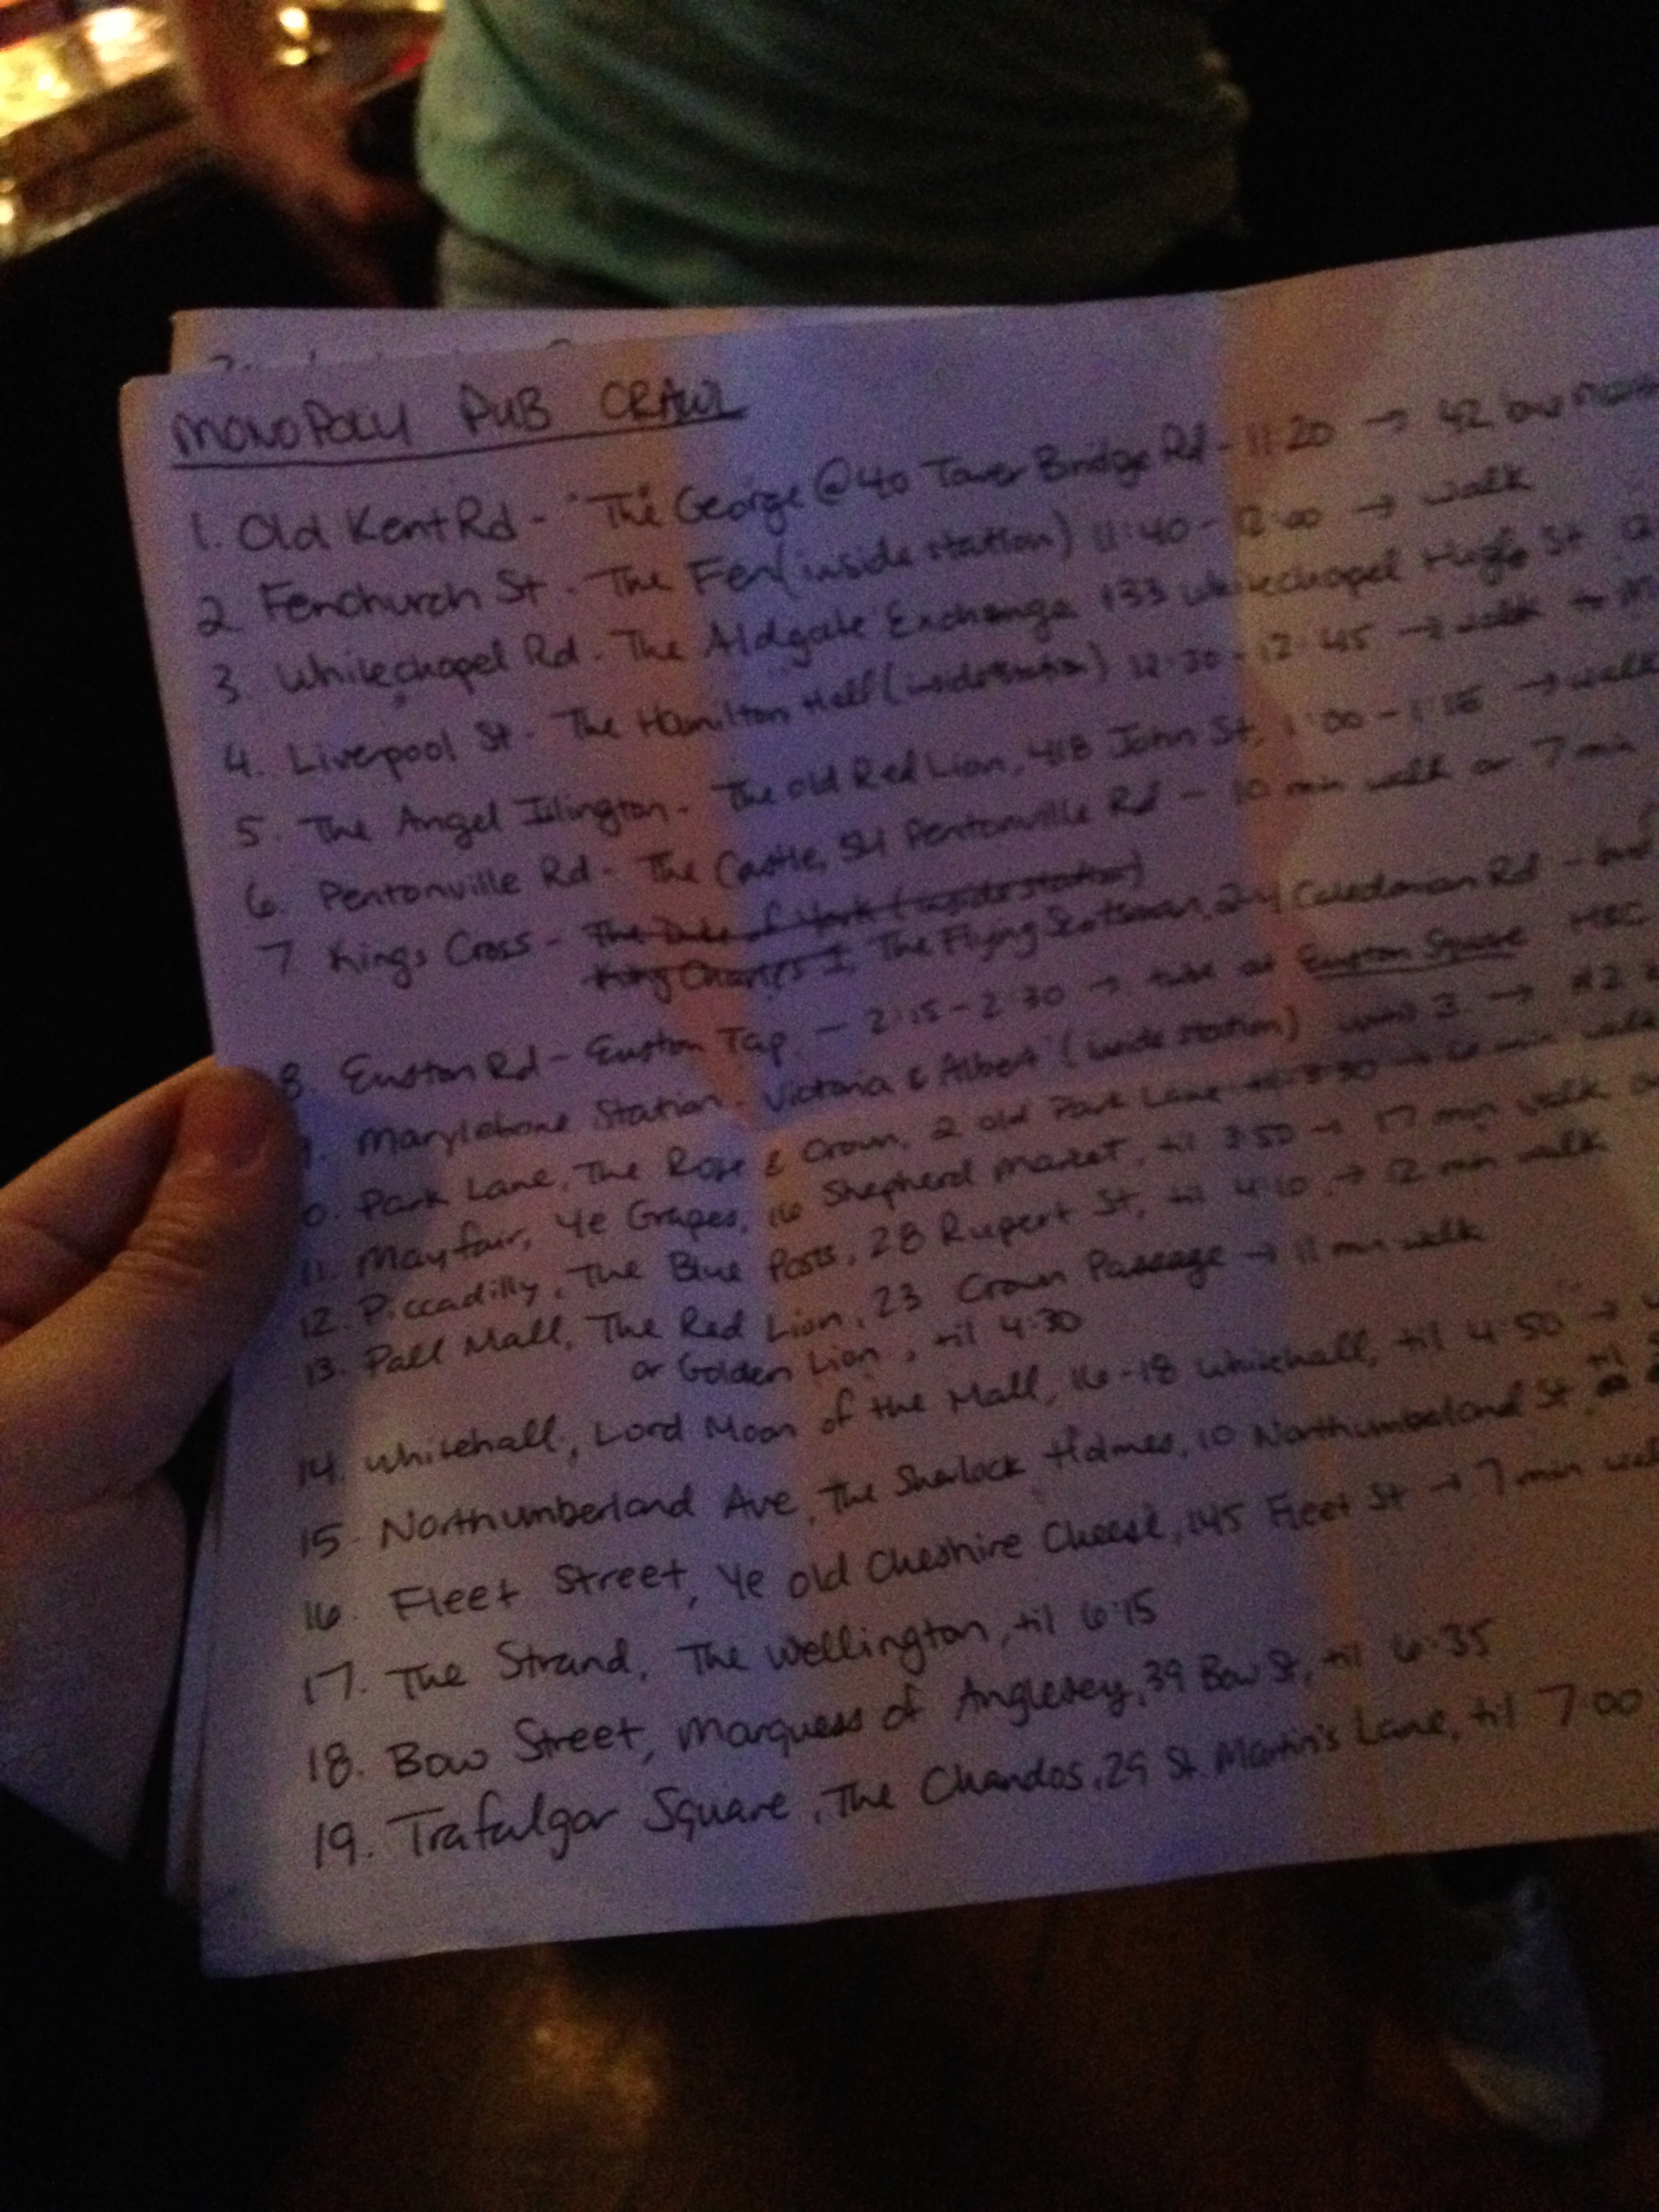 MONOPOLY PUB CRAWL
1. Old Kent Rd - "The George @ 40 Tower Bridge Rd - 11:20 → 42 bus
2. Fenchurch St. The Fen (inside station) 11:40 - 12:00 → walk
3. Whitechapel Rd. The Aldgate Exchange 133 Whitechapel High St 12
4. Liverpool St. The Hamilton Hall (inside station) 12:30 - 12:45 → walk →
5. The Angel Islington - The Old Red Lion, 418 John St, 1:00 - 1:15 → walk
6. Pentonville Rd - The Castle, 54 Pentonville Rd - 10 min walk or 7 min
7. Kings Cross - The Duke of York (inside station)
King Charles I The Flying Scotsman, 2-4 Caledonian Rd -
8. Euston Rd - Euston Tap - 2:15 - 2:30 → tube at Euston Square
9. Marylebone Station - Victoria & Albert (inside station) until 3 → #2
0. Park Lane, The Rose & Crown, 2 Old Park Lane → 6 min walk
11. Mayfair, Ye Grapes, 16 Shepherd Market, til 3:50 → 17 min walk or
12. Piccadilly, The Blue Posts, 28 Rupert St, til 4:10 → 12 min walk
13. Pall Mall, The Red Lion, 23 Crown Passage → 11 min walk
or Golden Lion, til 4:30
14. Whitehall, Lord Moon of the Mall, 16-18 Whitehall, til 4:50 →
15. Northumberland Ave, The Sherlock Holmes, 10 Northumberland St, til
16. Fleet Street, Ye Old Cheshire Cheese, 145 Fleet St → 7 min walk
17. The Strand, The Wellington, til 6:15
18. Bow Street, Marquess of Anglesey, 39 Bow St, til 6:35
19. Trafalgar Square, The Chandos, 29 St. Martin's Lane, til 7:00